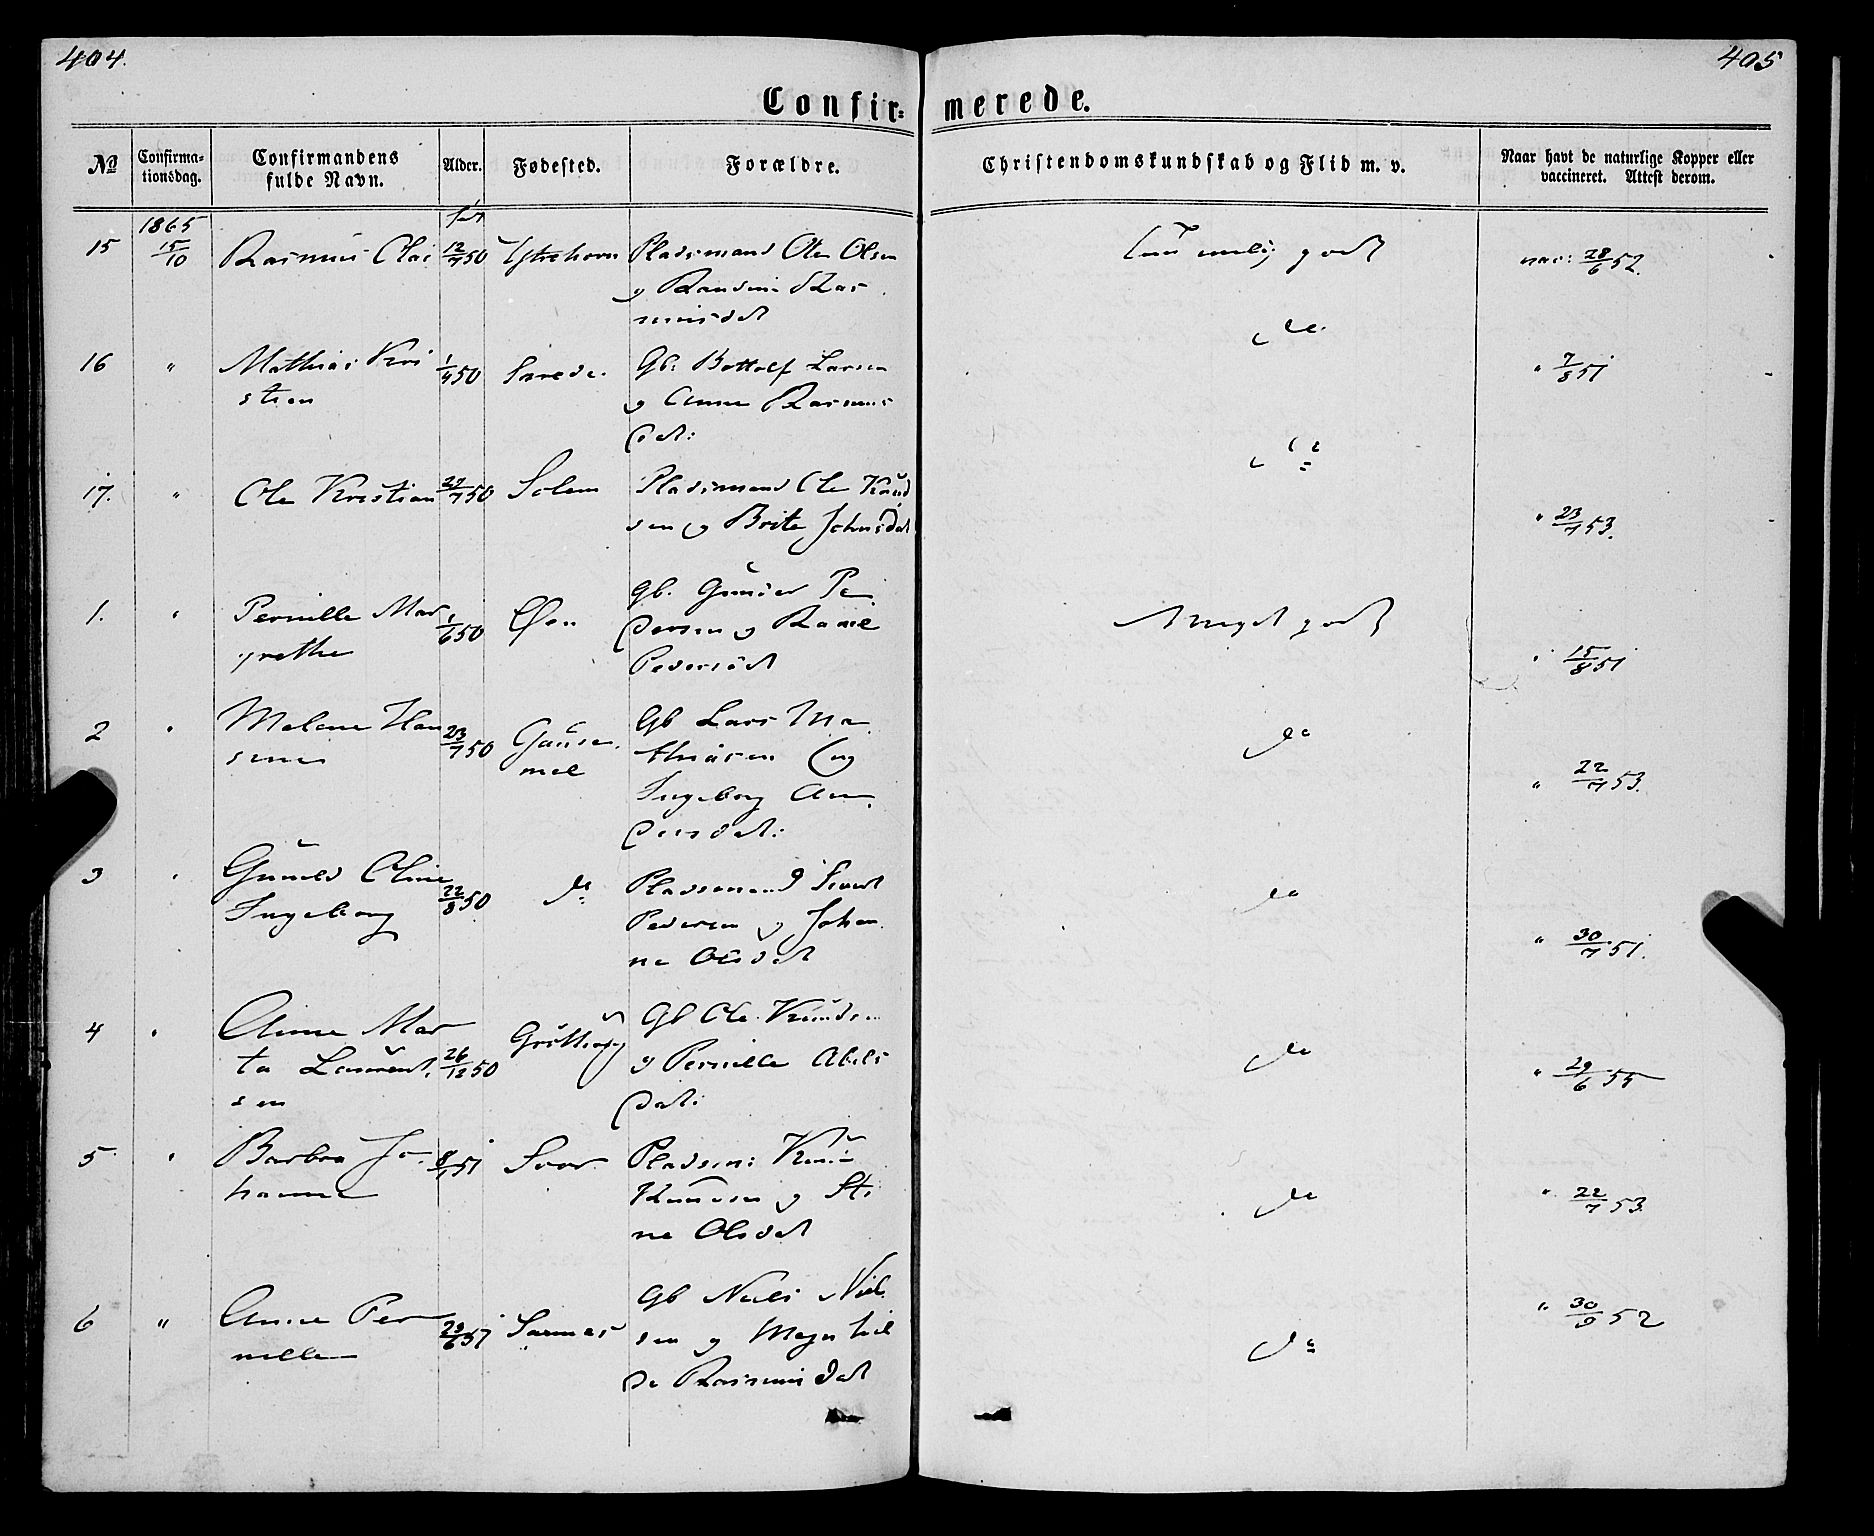 404.
405
Confir=
merede.
No
Confirma-
tionsdag.
Confirmandens
fulde Navn.
Alder.
Fødested.
Forældre.
Christendomskundskab og Flid m. v.
Naar havt de naturlige Kopper eller
vaccineret. Attest derom.
15 1865 15/10 Rasmus Olai 12/7 50 Pladsmand Ole Olsen
godt
vac: 28/6 52.
16 " Mathias Kri
stian
1/4 50
Gb: Bottolf Larsen
og Anne Rasmus
dat:
do
" 7/8 51
17. " Ole Kristian 27/7 50 Solem
Pladsmand Ole Knud
sen og Brite Johnsdat
" 23/7 53.
1. " Pernille Mar
grethe
1/6 50
Øen
gb. Gunder Pe
dersen og Rakel
Pedersdat
Meget godt
" 15/8 51
2 " Melene Han
sine
23/7 50
Gausе
mel
Gb Lars Ma
thiasen og
Ingeborg An
dersdat:
do
" 22/7 53.
3 " Gunild Oline
Ingeborg
22/8 50
do
Pladsmand Sivert
Pedersen og Johan
ne Olsdat
do
" 30/7 51.
4 " Anne Mar
ta Laurent
sen
26/12 50
Gb Ole Knudsen
og Pernille Abels
dat:
do
" 29/6 55
5 " Barbra Jo
hanne
8/1 51
Pladsm: Knud
Knudsen og Sti
ne Olsdat
do
" 22/7 53
6 " Anne Per
nille
29/6 51
Gb Neils Niel
sen og Magnhil
de Rasmusdat
do
" 30/9 52